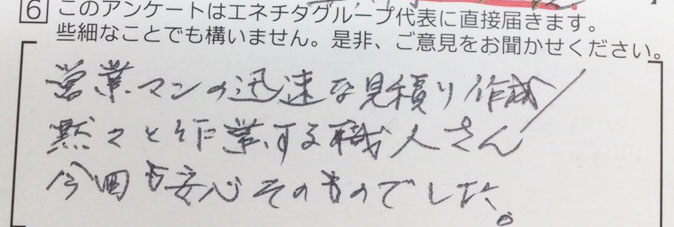 6 このアンケートはエネチタグループ代表に直接届きます。
些細なことでも構いません。是非、ご意見をお聞かせください。
営業マンの迅速な見積り作成/
黙々と作業する職人さん
今回も安心そのものでした。